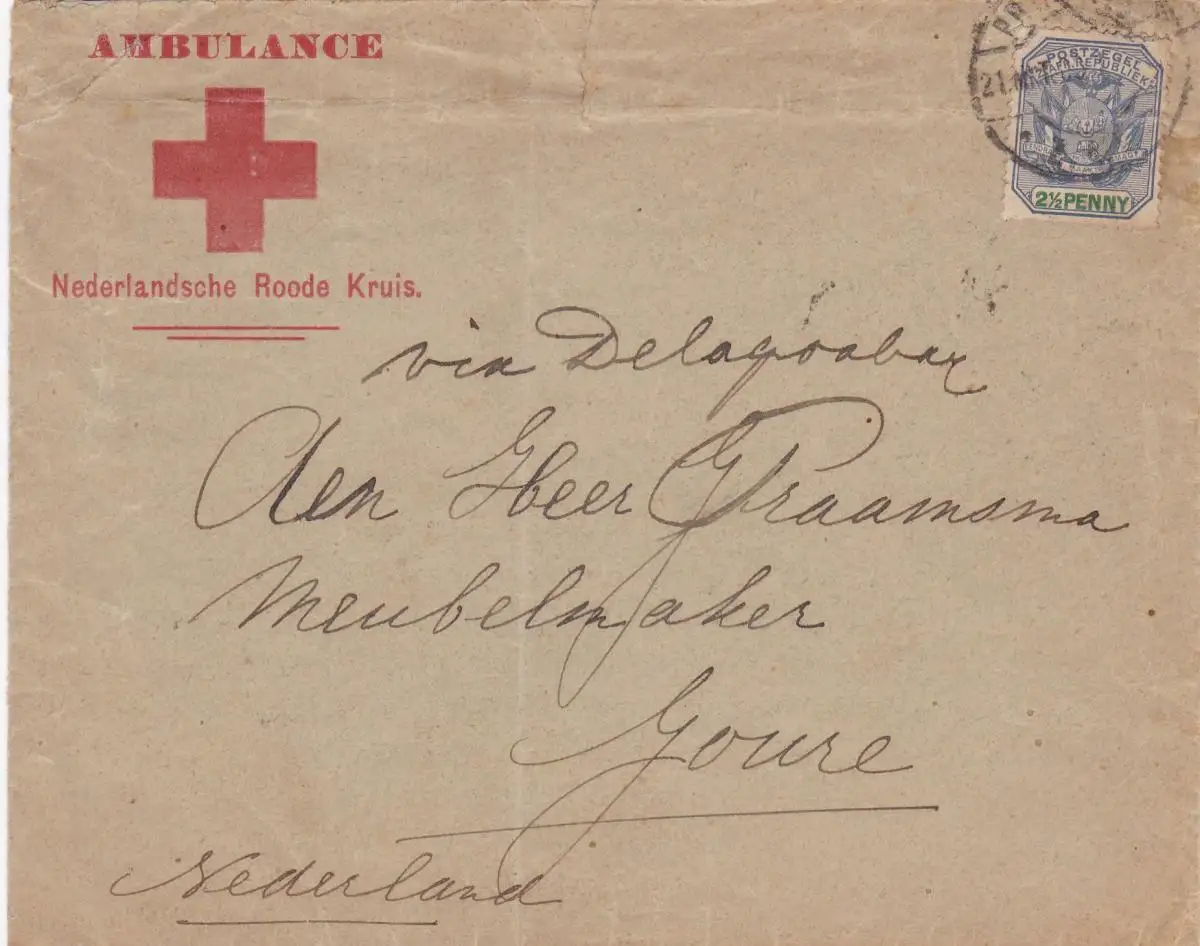 AMBULANCE
Nederlandsche Roode Kruis.
POSTZEGEL
Z. AFR. REPUBLIEK
EENDRA MAAKT MAGT
2½ PENNY
21.
via Delagoabay
Aen Heer G Praamsma
Meubelmaker
Joure
Nederland